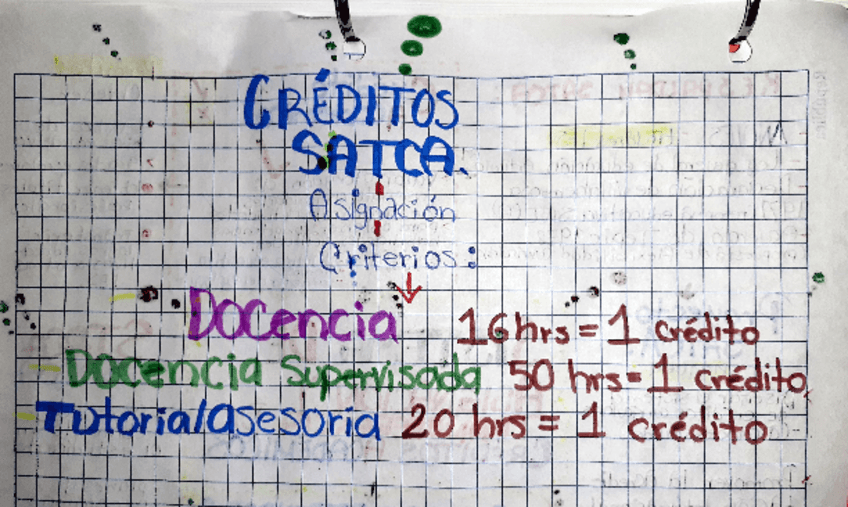 CRÉDITOS
SATCA.
Asignación
Criterios:
Docencia 16 hrs = 1 crédito
Docencia Supervisada 50 hrs = 1 crédito
Tutoria/asesoria 20 hrs = 1 crédito